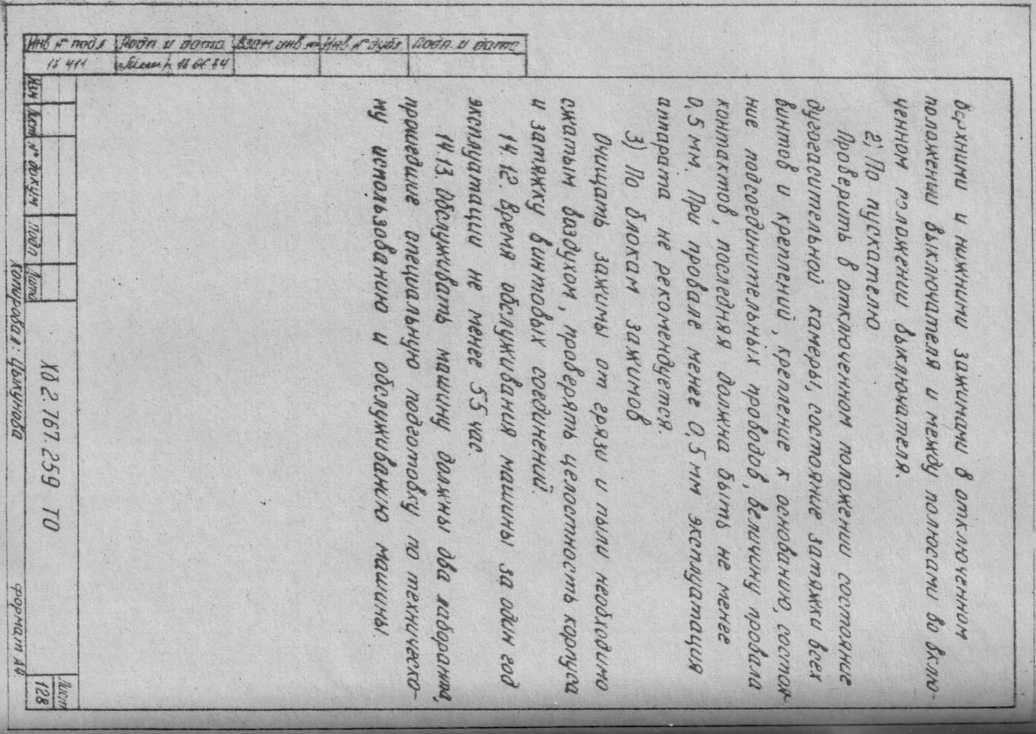 верхними и нижними зажимами в отключенном
положении выключателя и между полюсами во вклю-
ченном положении выключателя.
2) По пускателю
Проверить в отключенном положении состояние
дугогасительной камеры, состояние затяжки всех
винтов и креплений, крепление к основанию, состоя-
ние подсоединительных проводов, величину провала
контактов, последняя должна быть не менее
0,5 мм. При провале менее 0.5 мм эксплуатация
аппарата не рекомендуется
3) По блокам зажимов
Очищать зажимы от грязи и пыли необходимо
сжатым воздухом, проверять целостность корпуса
и затяжку винтовых соединений.
14.12. Время обслуживания машины за один год
эксплуатации не менее 55 час.
14.13. Обслуживать машину должны два лаборанта,
прошедшие специальную подготовку по техническо-
му использованию и обслуживанию машины.
Инв № подл Подп и дата Взам инв № Инв № дубл Подп. и дата
15 411
Изм Лист № докум Подп Дата
ХД 2.767.259 ТО
Лист
128
Копировал: Цыкунова
формат А4